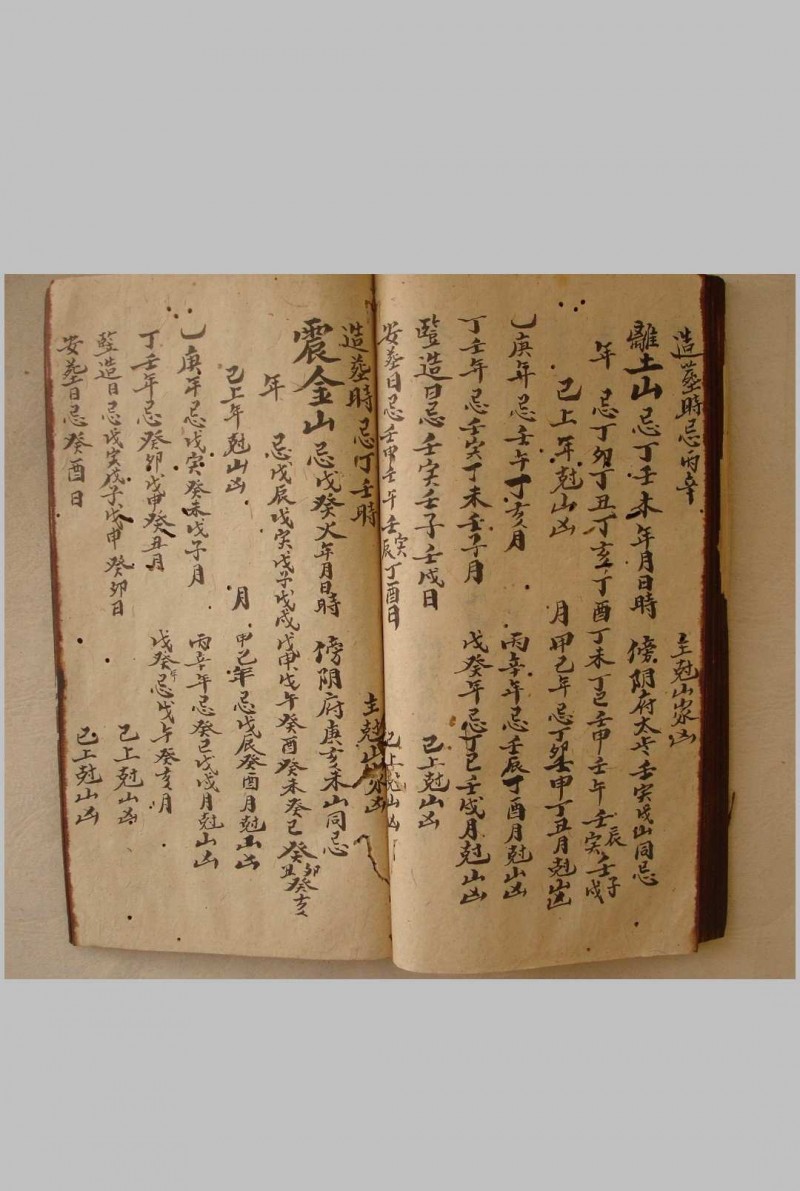 造塟時忌丙辛 主尅山家凶
離土山忌丁壬未年月日時 傍阴府太 壬寅戌山同忌
年 忌丁卯丁丑丁亥丁酉丁未丁巳壬申壬午壬辰壬寅壬子壬戌
已上年尅山凶
月 甲己年忌丁卯壬申丁丑月尅山凶
乚庚年忌壬午丁亥月 丙辛年忌壬辰丁酉月尅山凶
丁壬年忌壬寅丁未壬子月 戊癸年忌丁巳壬戌月尅山凶
竪造日忌壬寅壬子壬戌日 已上尅山凶
安塟日忌壬申壬午壬寅壬辰丁酉日 已上尅山凶
造塟時忌丁壬時 主尅山家凶
震金山忌戊癸火年月日時 傍阴府庚亥未山同忌
年 忌戊辰戊寅戊子戊戌戊申戊午癸酉癸未癸巳癸卯癸丑癸亥
已上年尅山凶
月 甲己年忌戊辰癸酉月尅山凶
乚庚年忌戊寅癸未戊子月 丙辛年忌癸巳戊戌月尅山凶
丁壬年忌癸卯戊申癸丑月 戊癸年忌戊午癸亥月
竪造日忌戊寅戊子戊申癸卯日 已上尅山凶
安塟日忌癸酉日 已上尅山凶